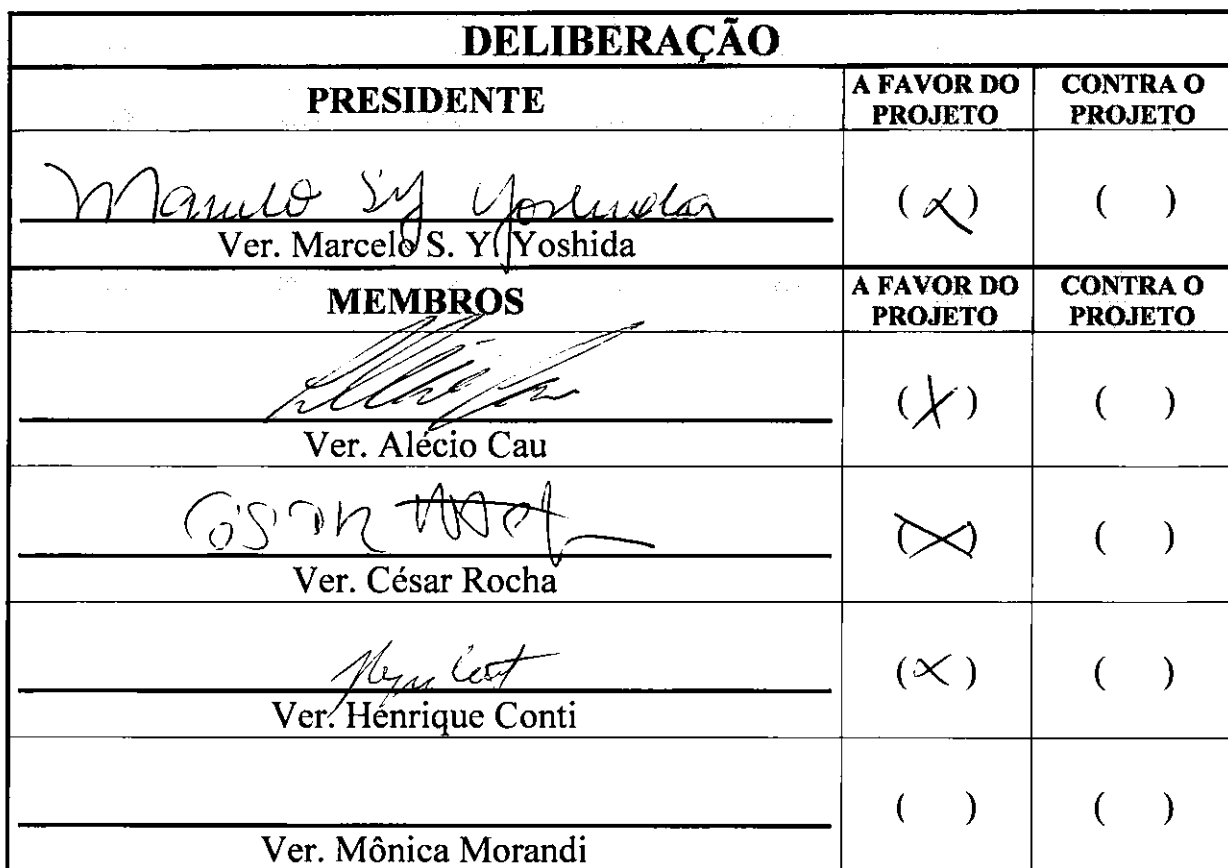 DELIBERAÇÃO
PRESIDENTE
A FAVOR DO PROJETO
CONTRA O PROJETO
Marcelo S Y Yoshida
Ver. Marcelo S. Y. Yoshida
(X)
( )
MEMBROS
A FAVOR DO PROJETO
CONTRA O PROJETO
Ver. Alécio Cau
(X)
( )
Ver. César Rocha
(X)
( )
Ver. Henrique Conti
(X)
( )
Ver. Mônica Morandi
( )
( )